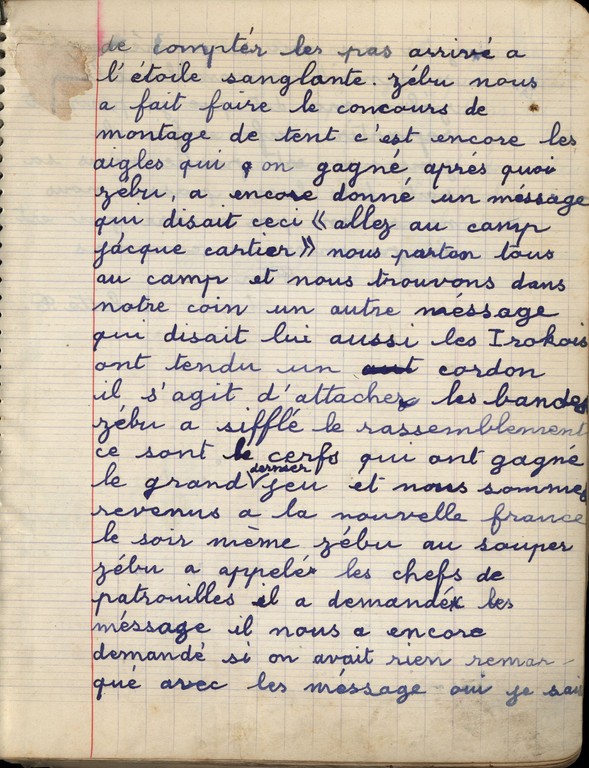 de comptér les pas arrivé a
l'étoile sanglante. zébu nous
a fait faire le concours de
montage de tent c'est encore les
aigles qui on gagné aprés quoi
zébu, a encore donné un méssage
qui disait ceci « allez au camp
jacque cartier » nous parton tous
au camp et nous trouvons dans
notre coin un autre méssage
qui disait lui aussi les Irokois
ont tendu un cordon
il s'agit d'attacher les bandes
zébu a sifflé le rassemblement
ce sont le cerfs qui ont gagné
le grand dernier jeu et nous sommes
revenus a la nouvelle france
le soir même zébu au souper
zébu a appelé les chefs de
patrouilles il a demandé les
méssage il nous a encore
demandé si on avait rien remar-
qué avec les méssage oui je sais